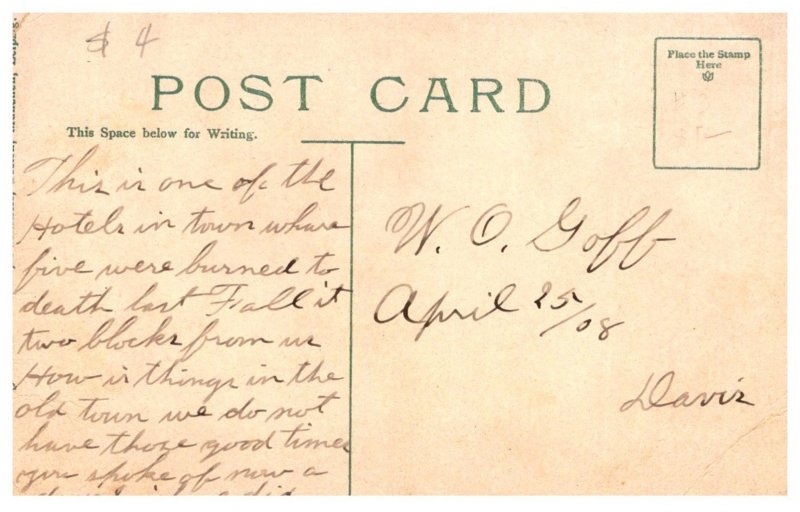 $ 4
POST CARD
Place the Stamp
Here
This Space below for Writing.
This is one of the
Hotels in town where
five were burned to
death last Fall it
two blocks from us
How is things in the
old town we do not
have those good times
you spoke of now a
W. O. Goff
April 25/08
Davis